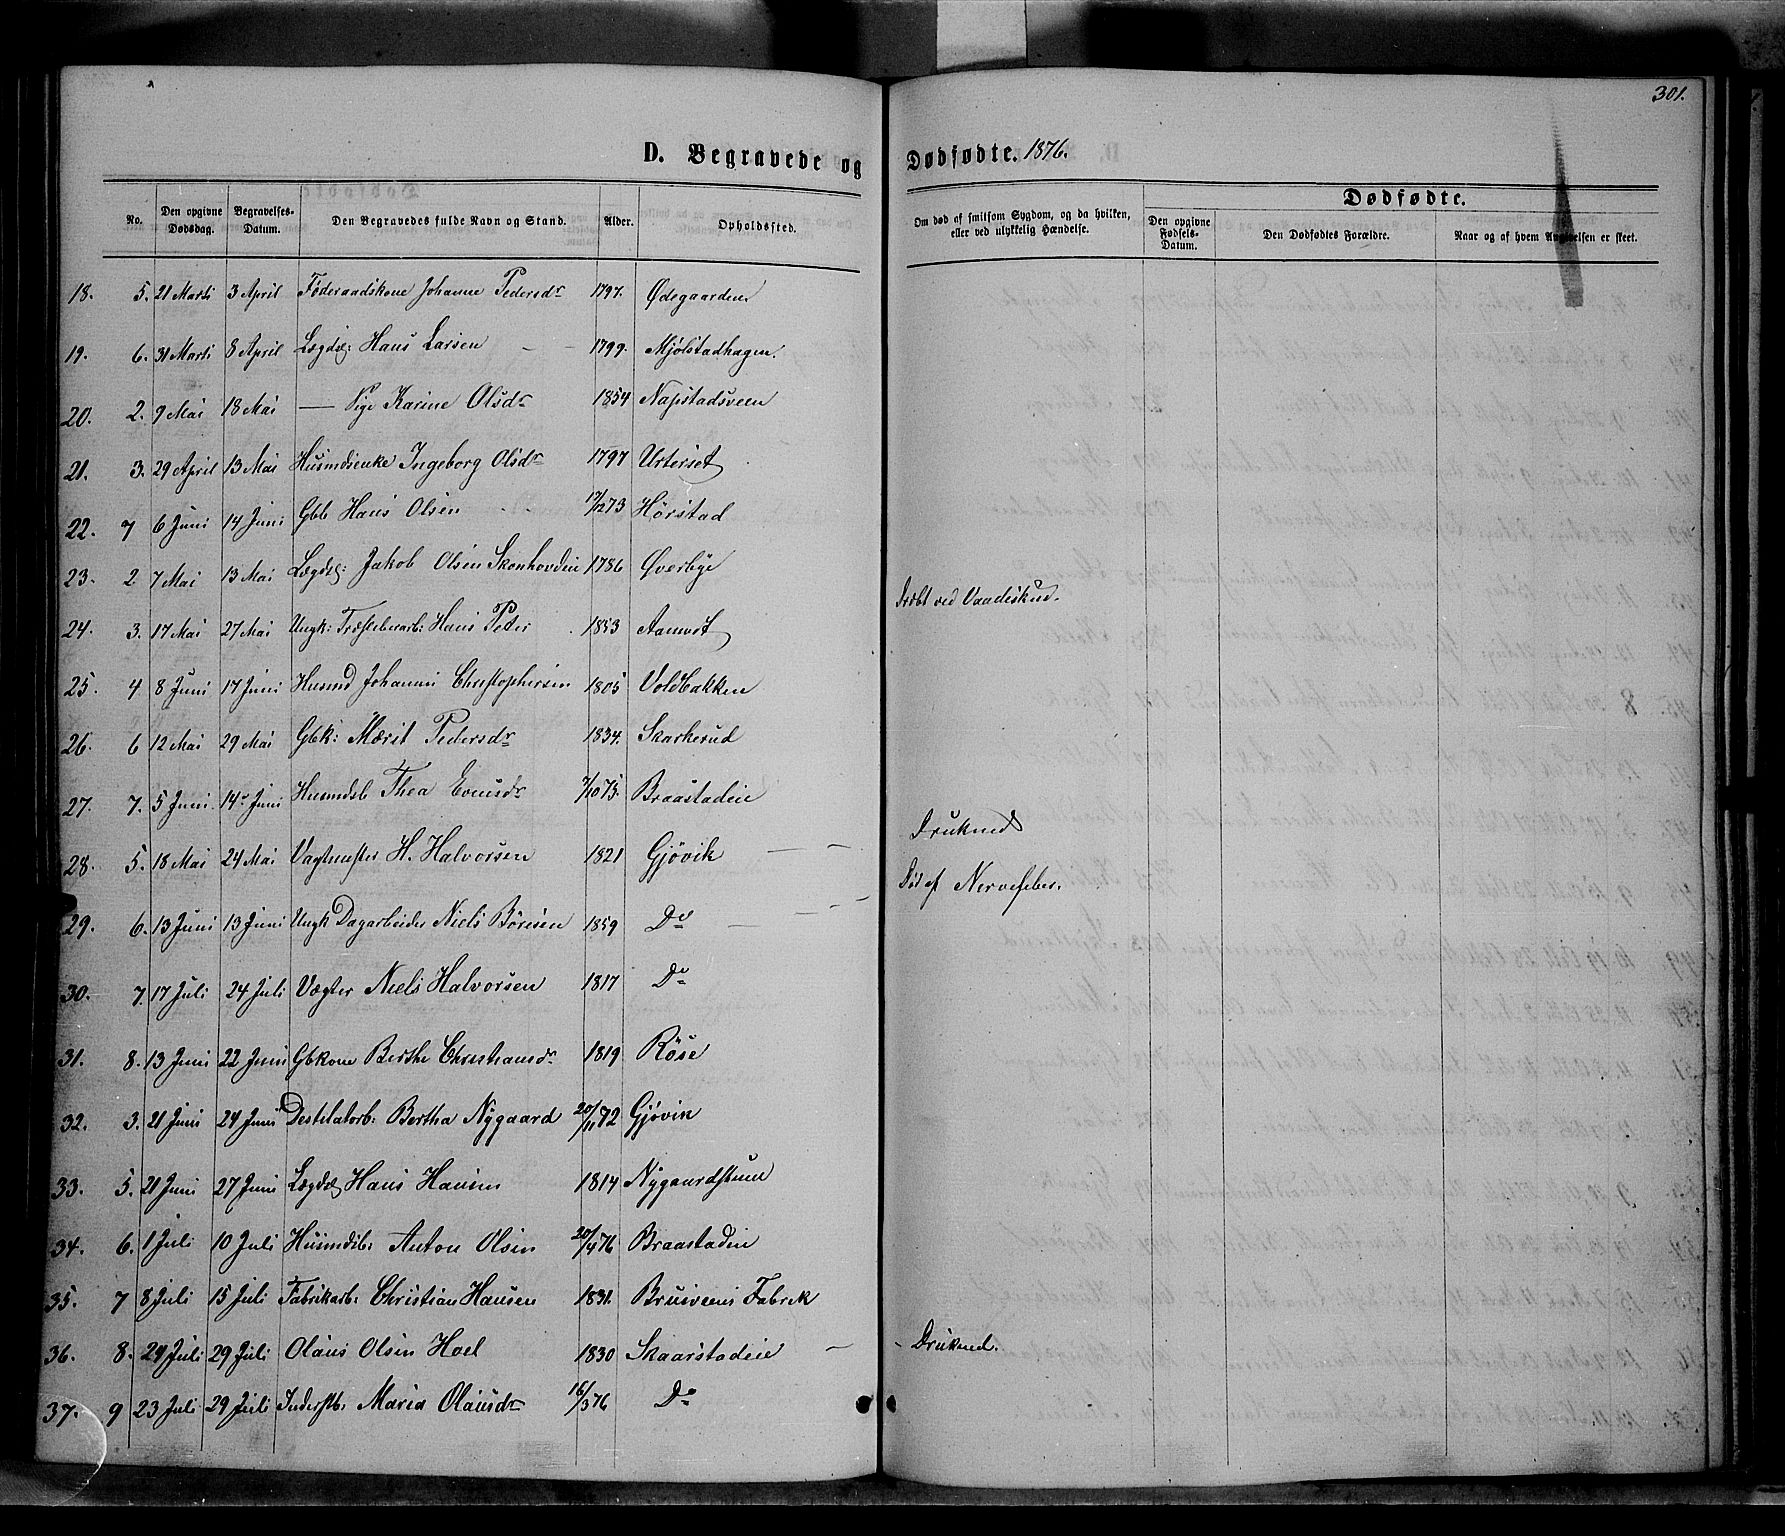 301.
D. Begravede og Dødfødte. 1876.
No. Den opgivne Dødsdag. Begravelses-Datum. Den Begravedes fulde Navn og Stand. Alder. Opholdssted. Om død af smitsom Sygdom, og da hvilken, eller ved ulykkelig Hændelse. Dødfødte. Den opgivne Fødsels-Datum. Den Dødfødtes Forældre. Naar og af hvem Angivelsen er skeet.
18. 5. 21 Marti 3 April Føderaadskone Johanne Pedersdr 1797. Ødegaarden
19. 6. 31 Marti 8 April Lægdsl: Hans Larsen 1799. Mjølstadhagen.
20. 2. 9 Mai 18 Mai — Pige Karine Olsdr 1854 Napstadsveen
21. 3. 29 April 13 Mai Husmdsenke Ingeborg Olsdr 1797 Urterset
22. 7 6 Juni 14 Juni Gbb Hans Olsen 17/1273 Hørstad
23. 2. 7 Mai 13 Mai Lægdsl: Jakob Olsen Skonhovdeie 1786 Øverbye
24. 3. 17 Mai 27 Mai Ungk: Træsliberarb: Hans Peter 1853 Aamodt Dræbt ved Vaadeskud.
25. 4 8 Juni 17 Juni Husmd Johannes Christophersen 1805 Voldbakken
26. 6 12 Mai 29 Mai Gbk: Marit Pedersdr 1834. Skarkerud
27. 7. 5 Juni 14 Juni Husmdsb Thea Evensdr 7/1075. Braastadeie
28. 5. 18 Mai 24 Mai Vagtmester H. Halvorsen 1821 Gjøvik — - Druknede
29. 6. 13 Juni 13 Juni Ungk Dagarbeider Niels Børesen 1859 Do — Død af Nervefeber.
30. 7. 17 Juli 24 Juli Vægter Niels Halvorsen 1817 Do
31. 8. 13 Juni 22 Juni Gbkone Berthe Christiansdr 1819. Røse
32. 3. 21 Juni 24 Juni Destilatorb: Bertha Nygaard 20/1172 Gjøvik
33. 5. 21 Juni 27 Juni Lægdsl Hans Hansen 1814 Nygaardstuen
34. 6. 1 Juli 10 Juli Husmdsb: Anton Olsen 20/476 Braastadeie
35. 7 8 Juli 15 Juli Fabrikarb: Christian Hansen 1831. Brusveens Fabrik
36. 8. 24 Juli 29 Juli Olaus Olsen Hoel 1830 Skaarstadeie — - Druknede.
37. 9 23 Juli 29 Juli Inderstb: Maria Olausdr 16/376 Do